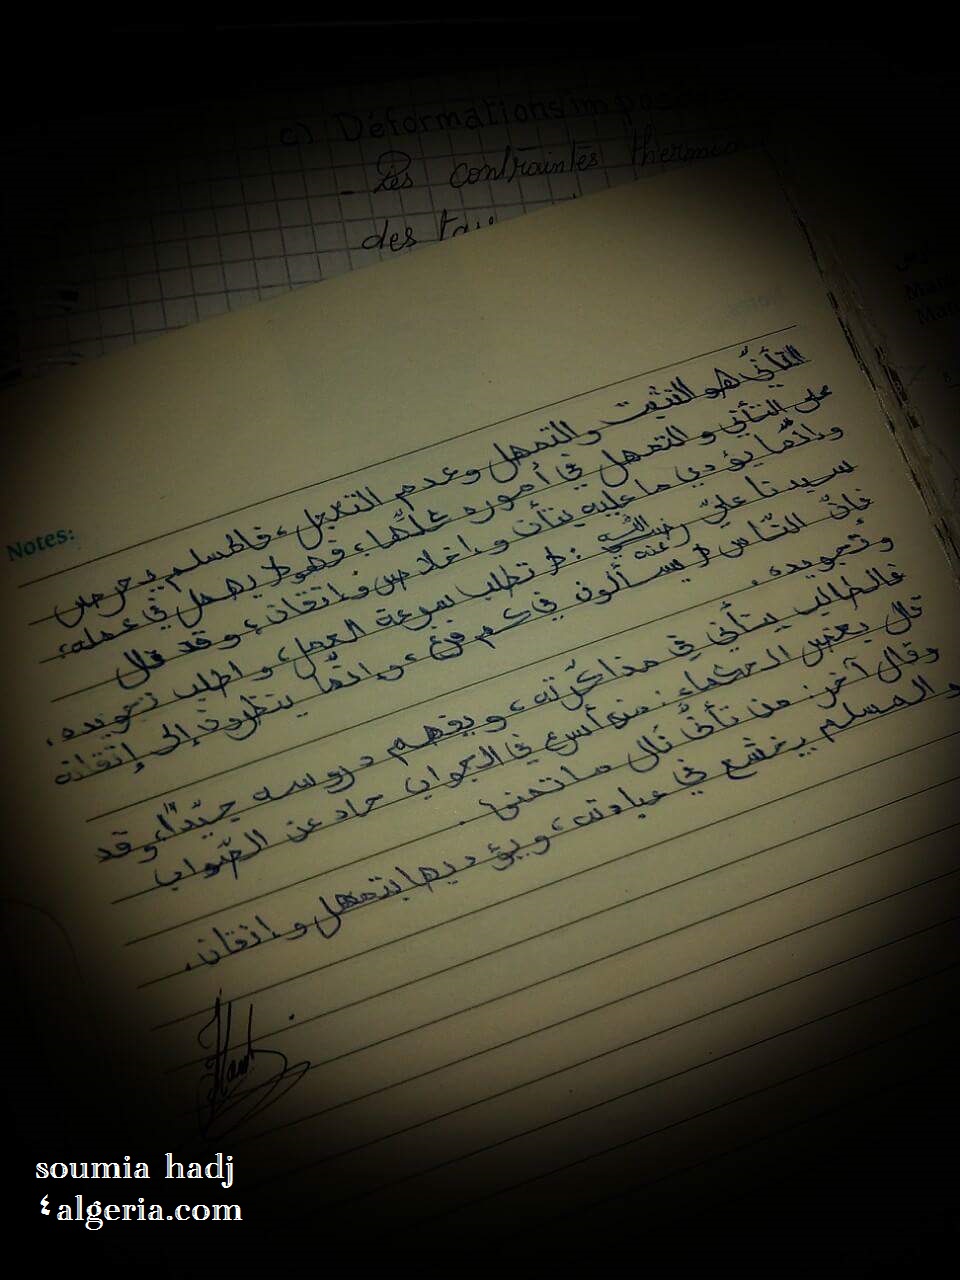 c) Déformations imposées
- Les contraintes thermi
des
Notes:
التأنّي هو التثبت والتمهل وعدم التعجل، فالمسلم يحرص
على التأني والتمهل في أموره كلّها، فهو لا يهمل في عمله،
وإنّما يؤدي ما عليه بتأن وإخلاص وإتقان، وقد قال
سيدنا عليّ رضي الله عنه: لا تطلب سرعة العمل، واطلب تجويده،
فإنّ النّاس لا يسألون في كم فرغ، وإنّما ينظرون إلى إتقانه
وتجويده.
فالطالب يتأنى في مذاكرته، ويفهم دروسه جيّدًا، وقد
قال بعض الحكماء: من أسرع في الجواب حاد عن الصّواب
وقال آخر: من تأنّى نال ما تمنى.
والمسلم يخشع في عبادته، ويؤديها بتمهل وإتقان.
soumia hadj
٤algeria.com